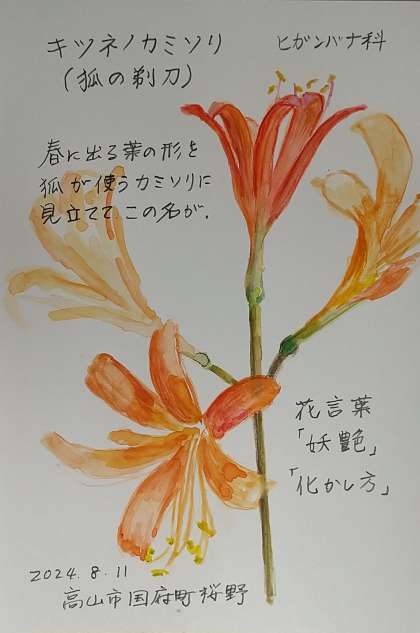 キツネノカミソリ
(狐の剃刀)
ヒガンバナ科
春に出る葉の形を
狐が使うカミソリに
見立てて、この名が.
花言葉
「妖艶」
「化かし方」
2024.8.11
高山市国府町桜野